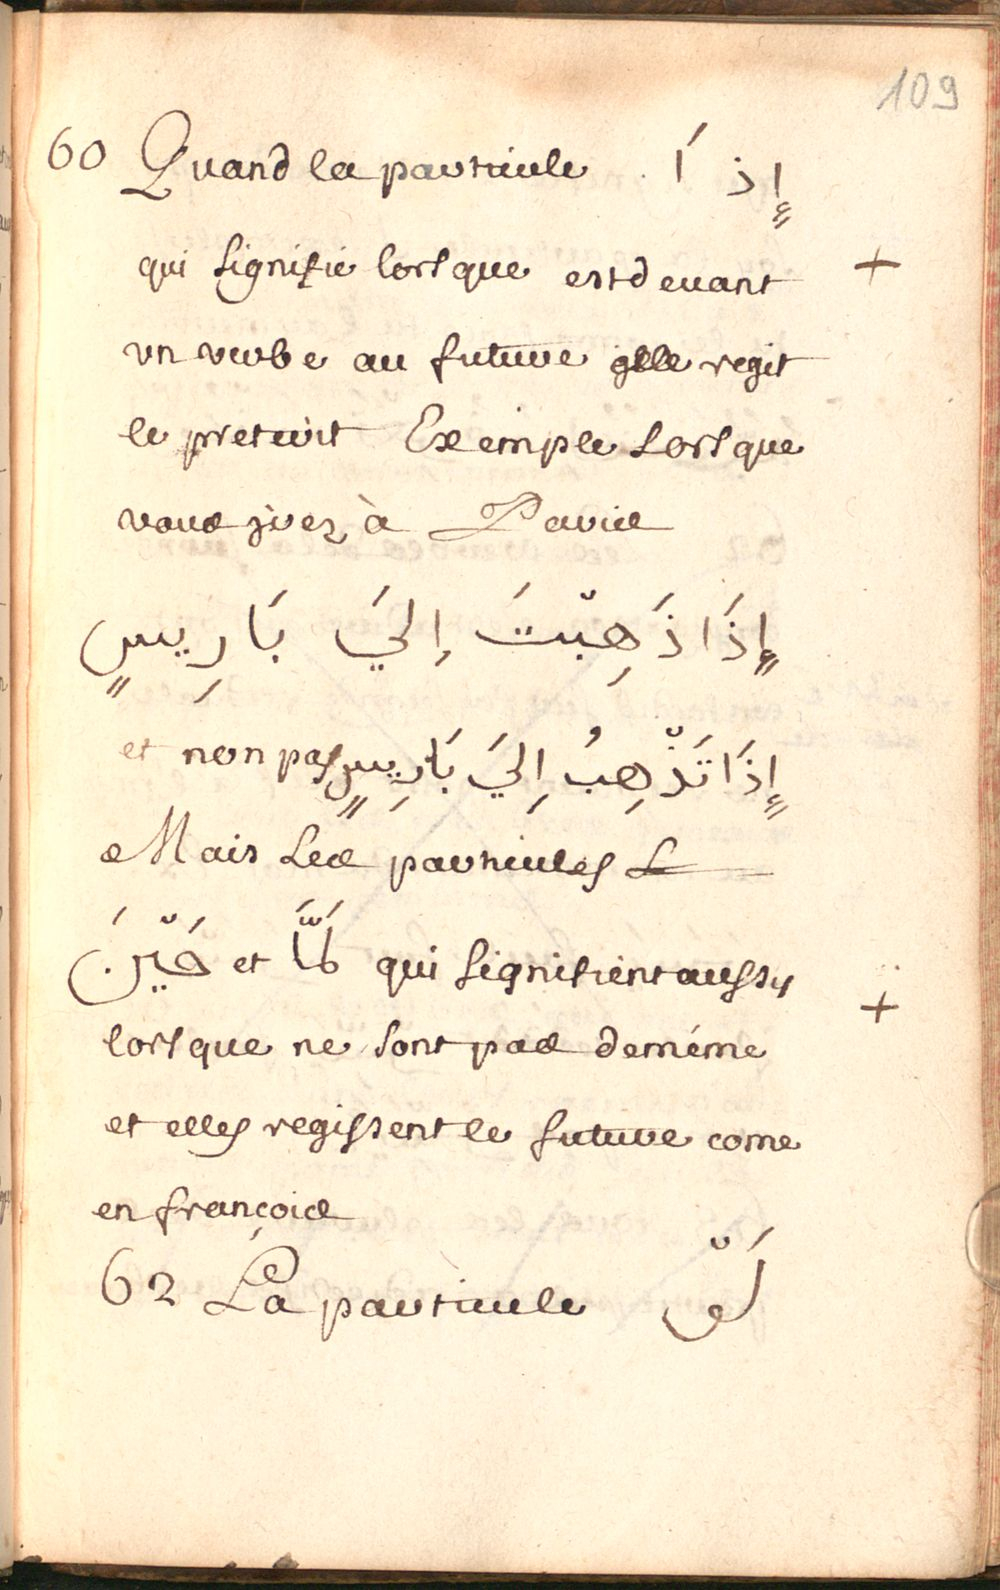 109
60 Quand la particule إِذَا
qui signifie lorsque est devant +
un verbe au future elle regit
le preterit Exemple Lorsque
vous jrez à Paris
إِذَا ذَهِبْتَ إِليَ بَارِيسٍ
et non pas إِذَا تَذْهِبُ إِليَ بَارِيسٍ
Mais Les particules
حَيْنَ et لمَّا qui signifient aussy
lorsque ne sont pas de méme +
et elles regissent le future come
en françois
62 La particule لَوْ